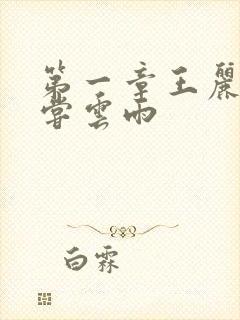 第一章王麗
嘗雲雨
白霖